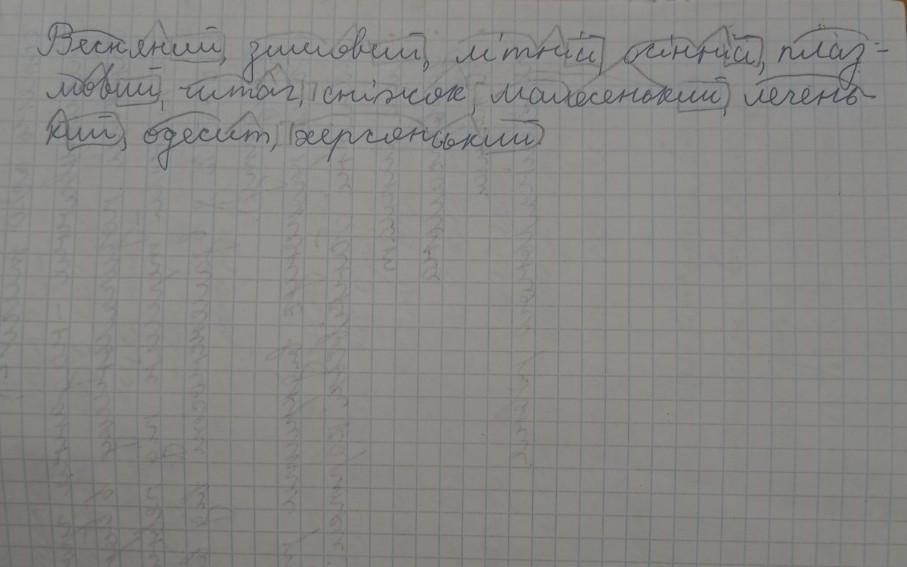 Весняний, зимовий, літній, осінній, плаз-
мовий, читач, сніжок, малюсенький, лечень-
кий, одесит, херсонський